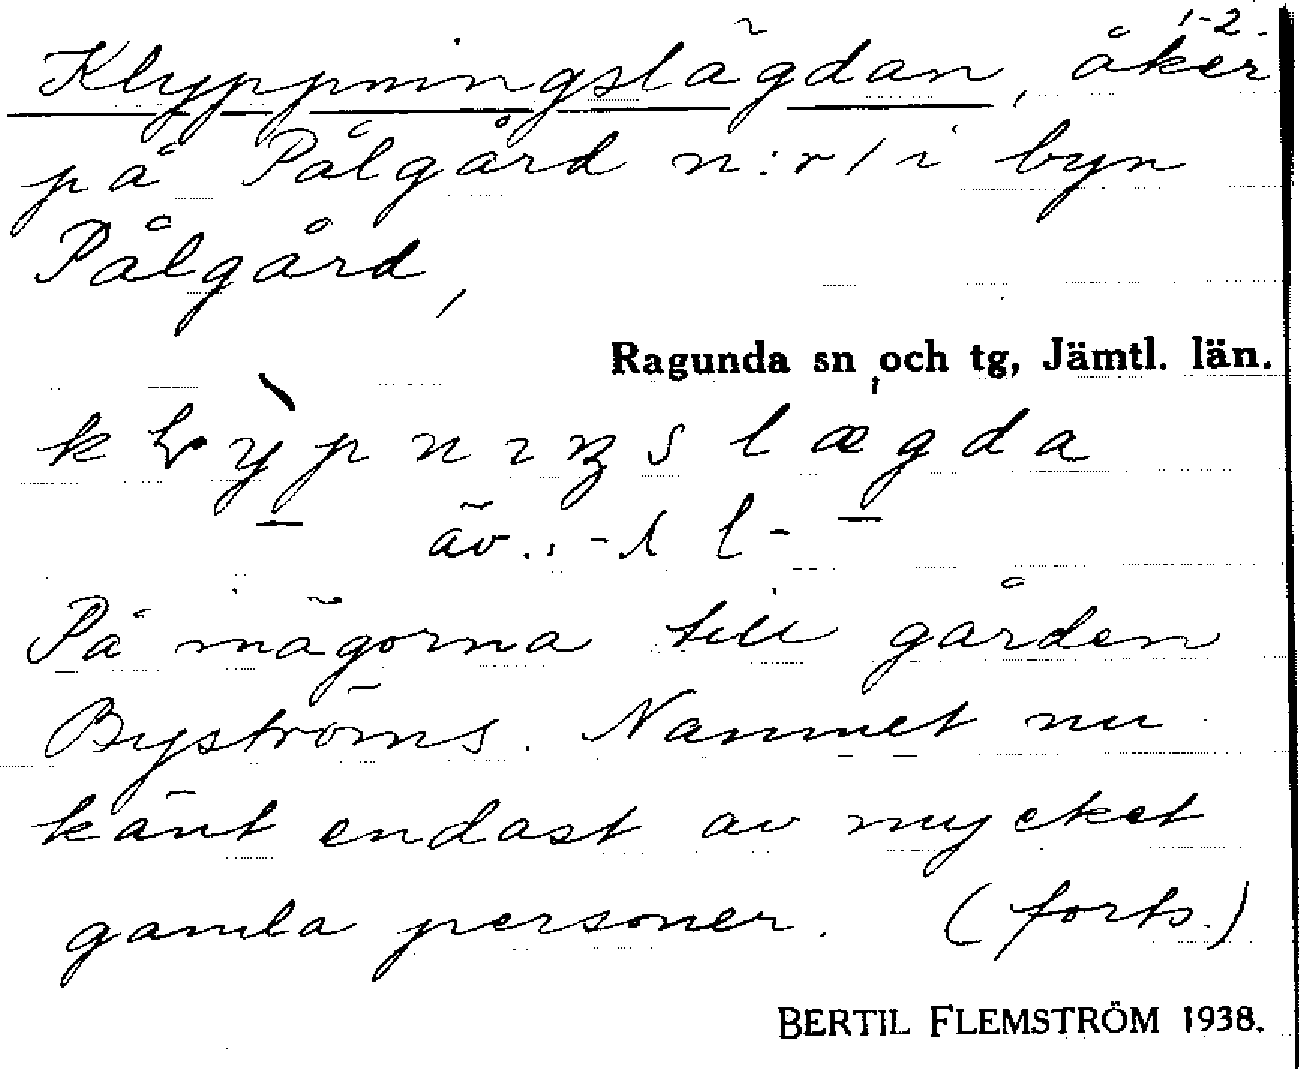 1-2.
Klyppningslägdan, åker
på Pålgård n:r 1 i byn
Pålgård,
Ragunda sn och tg, Jämtl. län.
äv.
På inägorna till gården
Byströms. Namnet nu
känt endast av mycket
gamla personer. (forts.)
BERTIL FLEMSTRÖM 1938.